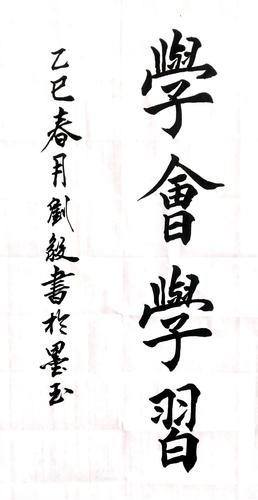 學會學習
乙巳春月劉毅書於墨玉